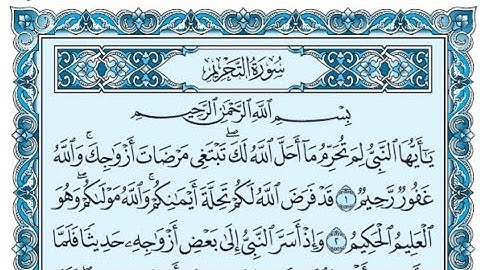 سُورَةُ التَّحْرِيمِ
بِسْمِ اللَّهِ الرَّحْمَٰنِ الرَّحِيمِ
يَٰٓأَيُّهَا النَّبِيُّ لِمَ تُحَرِّمُ مَآ أَحَلَّ اللَّهُ لَكَ ۖ تَبْتَغِي مَرْضَاتَ أَزْوَٰجِكَ ۚ وَاللَّهُ
غَفُورٌ رَّحِيمٌ ١ قَدْ فَرَضَ اللَّهُ لَكُمْ تَحِلَّةَ أَيْمَٰنِكُمْ ۚ وَاللَّهُ مَوْلَىٰكُمْ ۖ وَهُوَ
الْعَلِيمُ الْحَكِيمُ ٢ وَإِذْ أَسَرَّ النَّبِيُّ إِلَىٰ بَعْضِ أَزْوَٰجِهِۦ حَدِيثًا فَلَمَّا